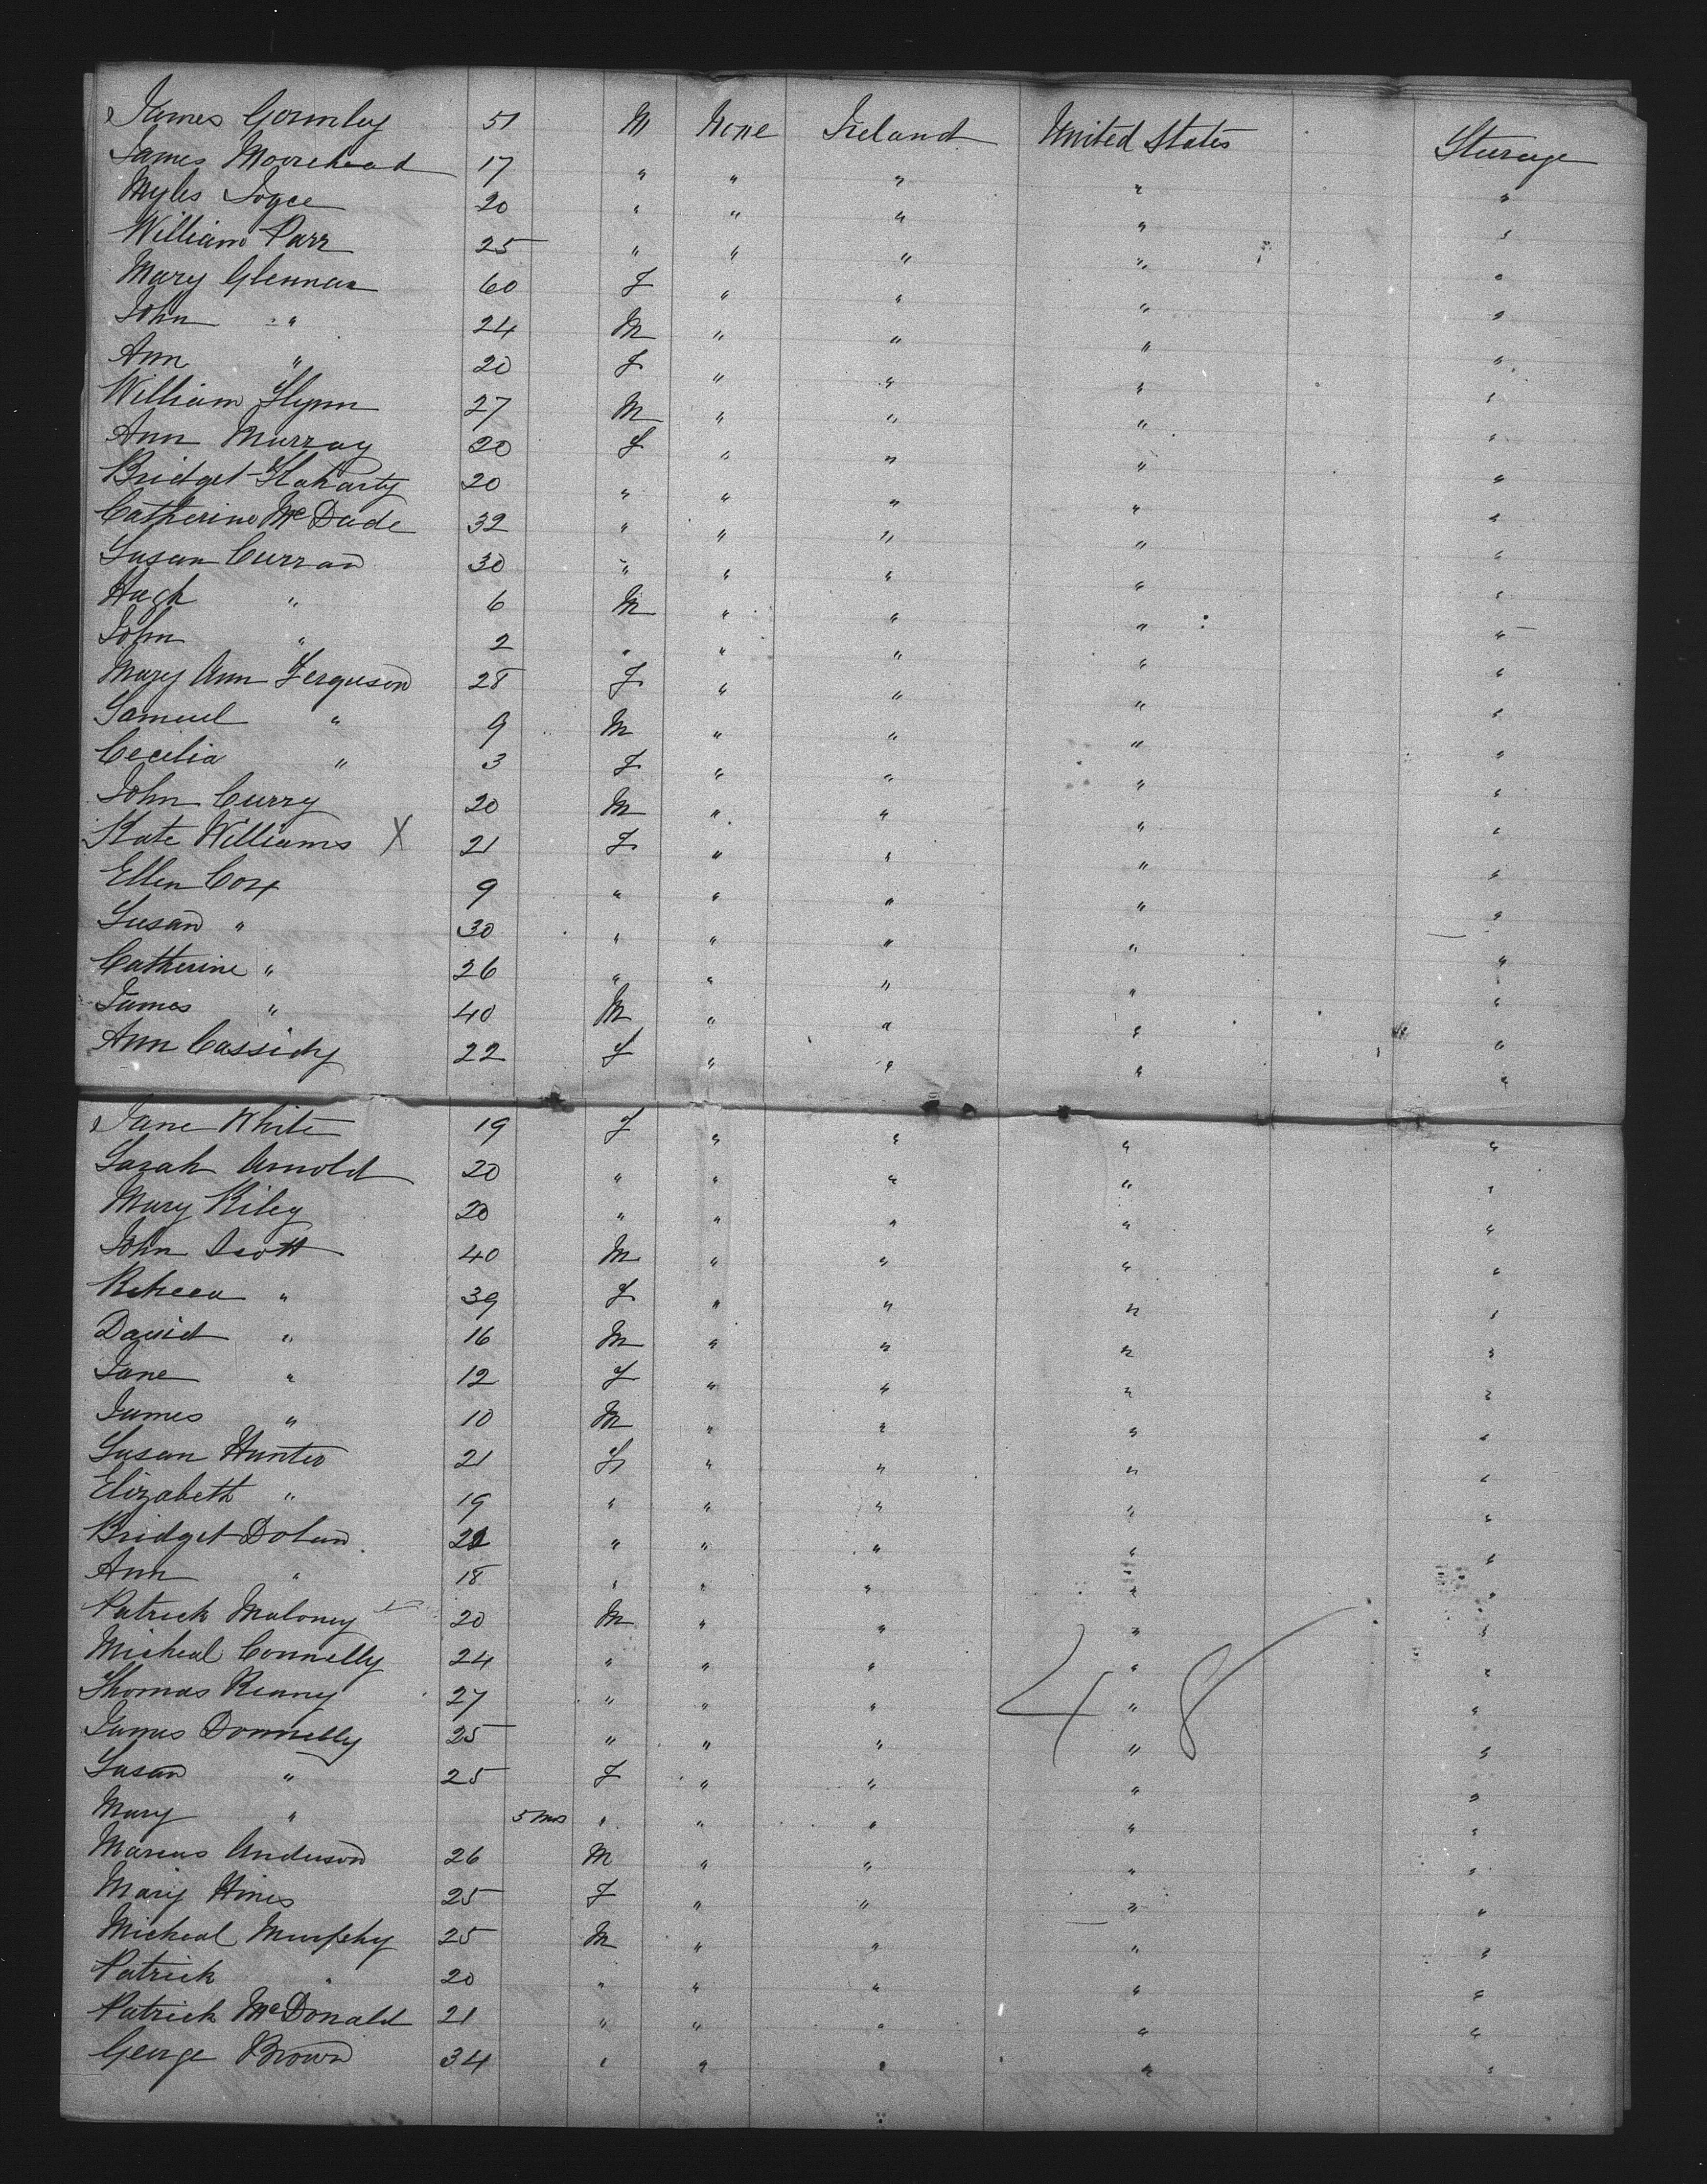 James Gormley 51 M None Ireland United States Steerage
James Moorehead 17 " " " " "
Myles Joyce 20 " " " " "
William Parr 25 " " " " "
Mary Glennan 60 F " " " "
John " 24 M " " " "
Ann " 20 F " " " "
William Flynn 27 M " " " "
Ann Murray 20 F " " " "
Bridget Flaharty 20 " " " " "
Catherine McDade 32 " " " " "
Susan Curran 30 " " " " "
Hugh " 6 M " " " "
John " 2 " " " " "
Mary Ann Ferguson 28 F " " " "
Samuel " 9 M " " " "
Cecilia " 3 F " " " "
John Curry 20 M " " " "
Kate Williams X 21 F " " " "
Ellen Cox 9 " " " " "
Susan " 30 " " " " "
Catherine " 26 " " " " "
James " 40 M " " " "
Ann Cassidy 22 F " " " "
Jane White 19 F " " " "
Sarah Arnold 20 " " " " "
Mary Riley 20 " " " " "
John Scott 40 M " " " "
Rebecca " 39 F " " " "
David " 16 M " " " "
Jane " 12 F " " " "
James " 10 M " " " "
Susan Hunter 21 F " " " "
Elizabeth " 19 " " " " "
Bridget Dolan " " " " "
Ann " 18 " " " " "
Patrick Maloney 20 M " " " "
Micheal Connelly 24 " " " " "
Thomas Reany 27 " " " " "
James Donnelly 25 " " " " "
48
Susan " 25 F " " " "
Mary " 5 mos " " " " "
Marcus Anderson 26 M " " " "
Mary Hines 25 F " " " "
Micheal Murphy 25 M " " " "
Patrick " 20 " " " " "
Patrick McDonald 21 " " " " "
George Brown 34 " " " " "